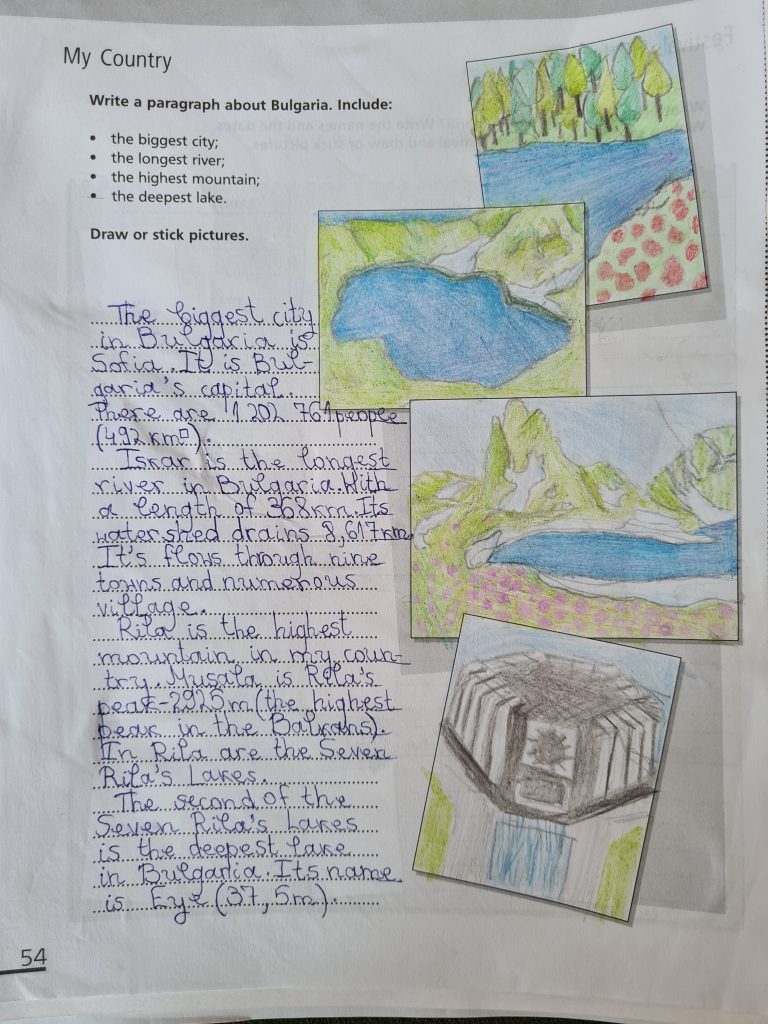 My Country
Write a paragraph about Bulgaria. Include:
• the biggest city;
• the longest river;
• the highest mountain;
• the deepest lake.
Draw or stick pictures.
The biggest city
in Bulgaria is
Sofia. It is Bul-
garia's capital.
There are 1 202 761 people
(492 km²).
Iskar is the longest
river in Bulgaria. With
a length of 368 km. Its
watershed drains 8,617 km
It's flows through nine
towns and numerous
village.
Rila is the highest
mountain in my coun-
try. Musala is Rila's
peak-2925m (the highest
peak in the Balkans).
In Rila are the Seven
Rila's Lakes.
The second of the
Seven Rila's Lakes
is the deepest lake
in Bulgaria. Its name
is Eye (37,5m).
54